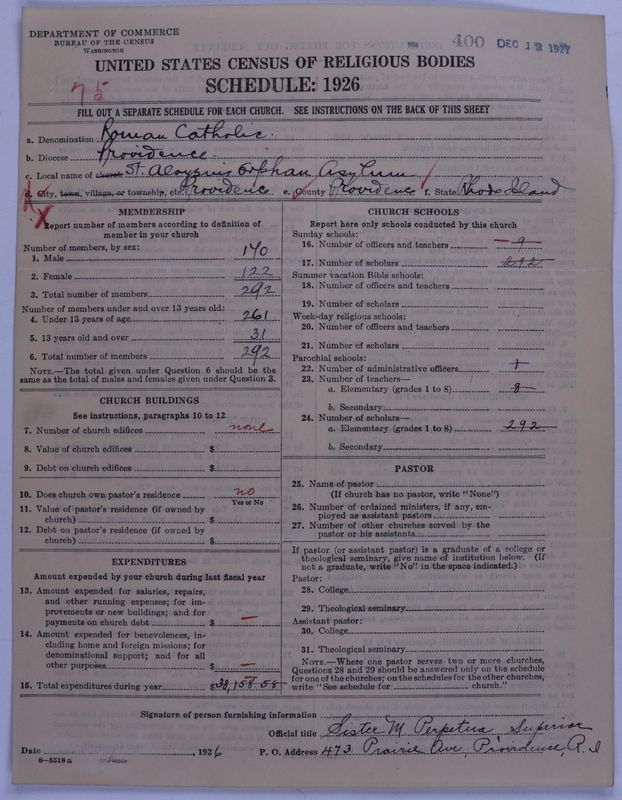 DEPARTMENT OF COMMERCE
BUREAU OF THE CENSUS
WASHINGTON
400 DEC 12 1927
UNITED STATES CENSUS OF RELIGIOUS BODIES
SCHEDULE: 1926
75
FILL OUT A SEPARATE SCHEDULE FOR EACH CHURCH. SEE INSTRUCTIONS ON THE BACK OF THIS SHEET
a. Denomination Roman Catholic.
b. Diocese Providence
c. Local name of church St. Aloysius Orphan Asylum
d. City, town, village, or township, etc. Providence e. County Providence f. State Rhode Island
MEMBERSHIP
Report number of members according to definition of
member in your church
Number of members, by sex:
1. Male 170
2. Female 122
3. Total number of members 292
Number of members under and over 13 years old:
4. Under 13 years of age 261
5. 13 years old and over 31
6. Total number of members 292
NOTE.—The total given under Question 6 should be
same as the total of males and females given under Question 3.
CHURCH BUILDINGS
See instructions, paragraphs 10 to 12
7. Number of church edifices none
8. Value of church edifices $
9. Debt on church edifices $
10. Does church own pastor's residence no
Yes or No
11. Value of pastor's residence (if owned by
church) $
12. Debt on pastor's residence (if owned by
church) $
EXPENDITURES
Amount expended by your church during last fiscal year
13. Amount expended for salaries, repairs,
and other running expenses; for im-
provements or new buildings; and for
payments on church debt $ —
14. Amount expended for benevolences, in-
cluding home and foreign missions; for
denominational support; and for all
other purposes $ —
15. Total expenditures during year $38,158 58
CHURCH SCHOOLS
Report here only schools conducted by this church
Sunday schools:
16. Number of officers and teachers 9
17. Number of scholars 292
Summer vacation Bible schools:
18. Number of officers and teachers
19. Number of scholars
Week-day religious schools:
20. Number of officers and teachers
21. Number of scholars
Parochial schools:
22. Number of administrative officers 1
23. Number of teachers—
a. Elementary (grades 1 to 8) 8
b. Secondary
24. Number of scholars—
a. Elementary (grades 1 to 8) 292
b. Secondary
PASTOR
25. Name of pastor
(If church has no pastor, write "None")
26. Number of ordained ministers, if any, em-
ployed as assistant pastors
27. Number of other churches served by the
pastor or his assistants
If pastor (or assistant pastor) is a graduate of a college or
theological seminary, give name of institution below. (If
not a graduate, write "No" in the space indicated.)
Pastor:
28. College
29. Theological seminary
Assistant pastor:
30. College
31. Theological seminary
NOTE.—Where one pastor serves two or more churches,
Questions 28 and 29 should be answered only on the schedule
for one of the churches; on the schedules for the other churches,
write "See schedule for church."
Signature of person furnishing information
Official title Sister M. Perpetua, Superior
Date , 1926 P. O. Address 473 Prairie Ave, Providence, R.I
8—5518a